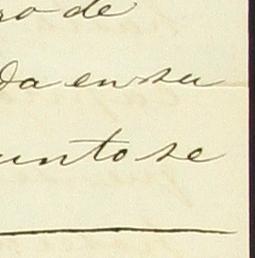 ro de
da en su
unto se